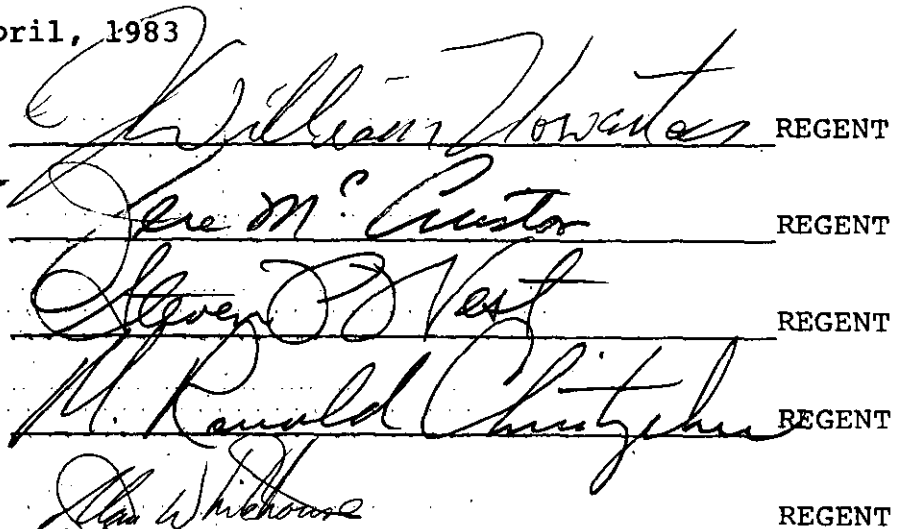 pril, 1983
J. William Howerton REGENT
Jere McCuiston REGENT
Steven O. West REGENT
M. Ronald Christopher REGENT
Alan Whitehouse REGENT